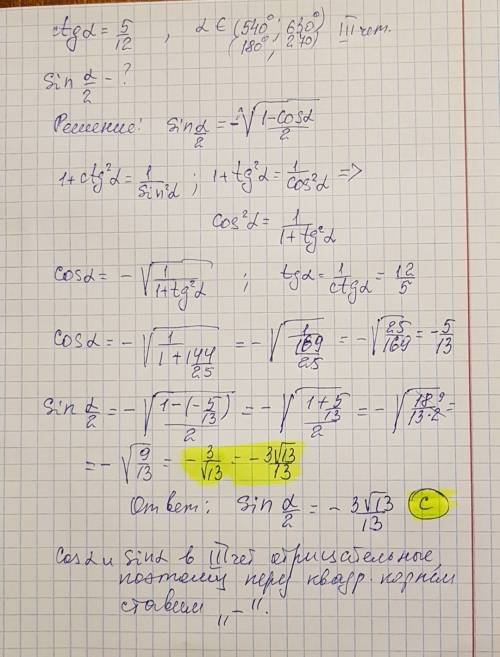 ctgα = 5/12 , α ∈ (540°; 630°) III чет.
(180°; 270)
Sin α/2 - ?
Решение: Sin α/2 = -√((1-cosα)/2)
1+ctg²α = 1/Sin²α ; 1+tg²α = 1/cos²α =>
cos²α = 1/(1+tg²α)
cosα = -√(1/(1+tg²α)) ; tgα = 1/ctgα = 12/5
cosα = -√(1/(1+144/25)) = -√(1/(169/25)) = -√(25/169) = -5/13
Sin α/2 = -√((1-(-5/13))/2) = -√((1+5/13)/2) = -√(18 9/(13·2)) =
= -√(9/13) = -3/√13 = -3√13/13
Ответ: Sin α/2 = -3√13/13 C
Cosα и Sinα в III чет отрицательные,
поэтому перед квадр. корнем
ставим „-".